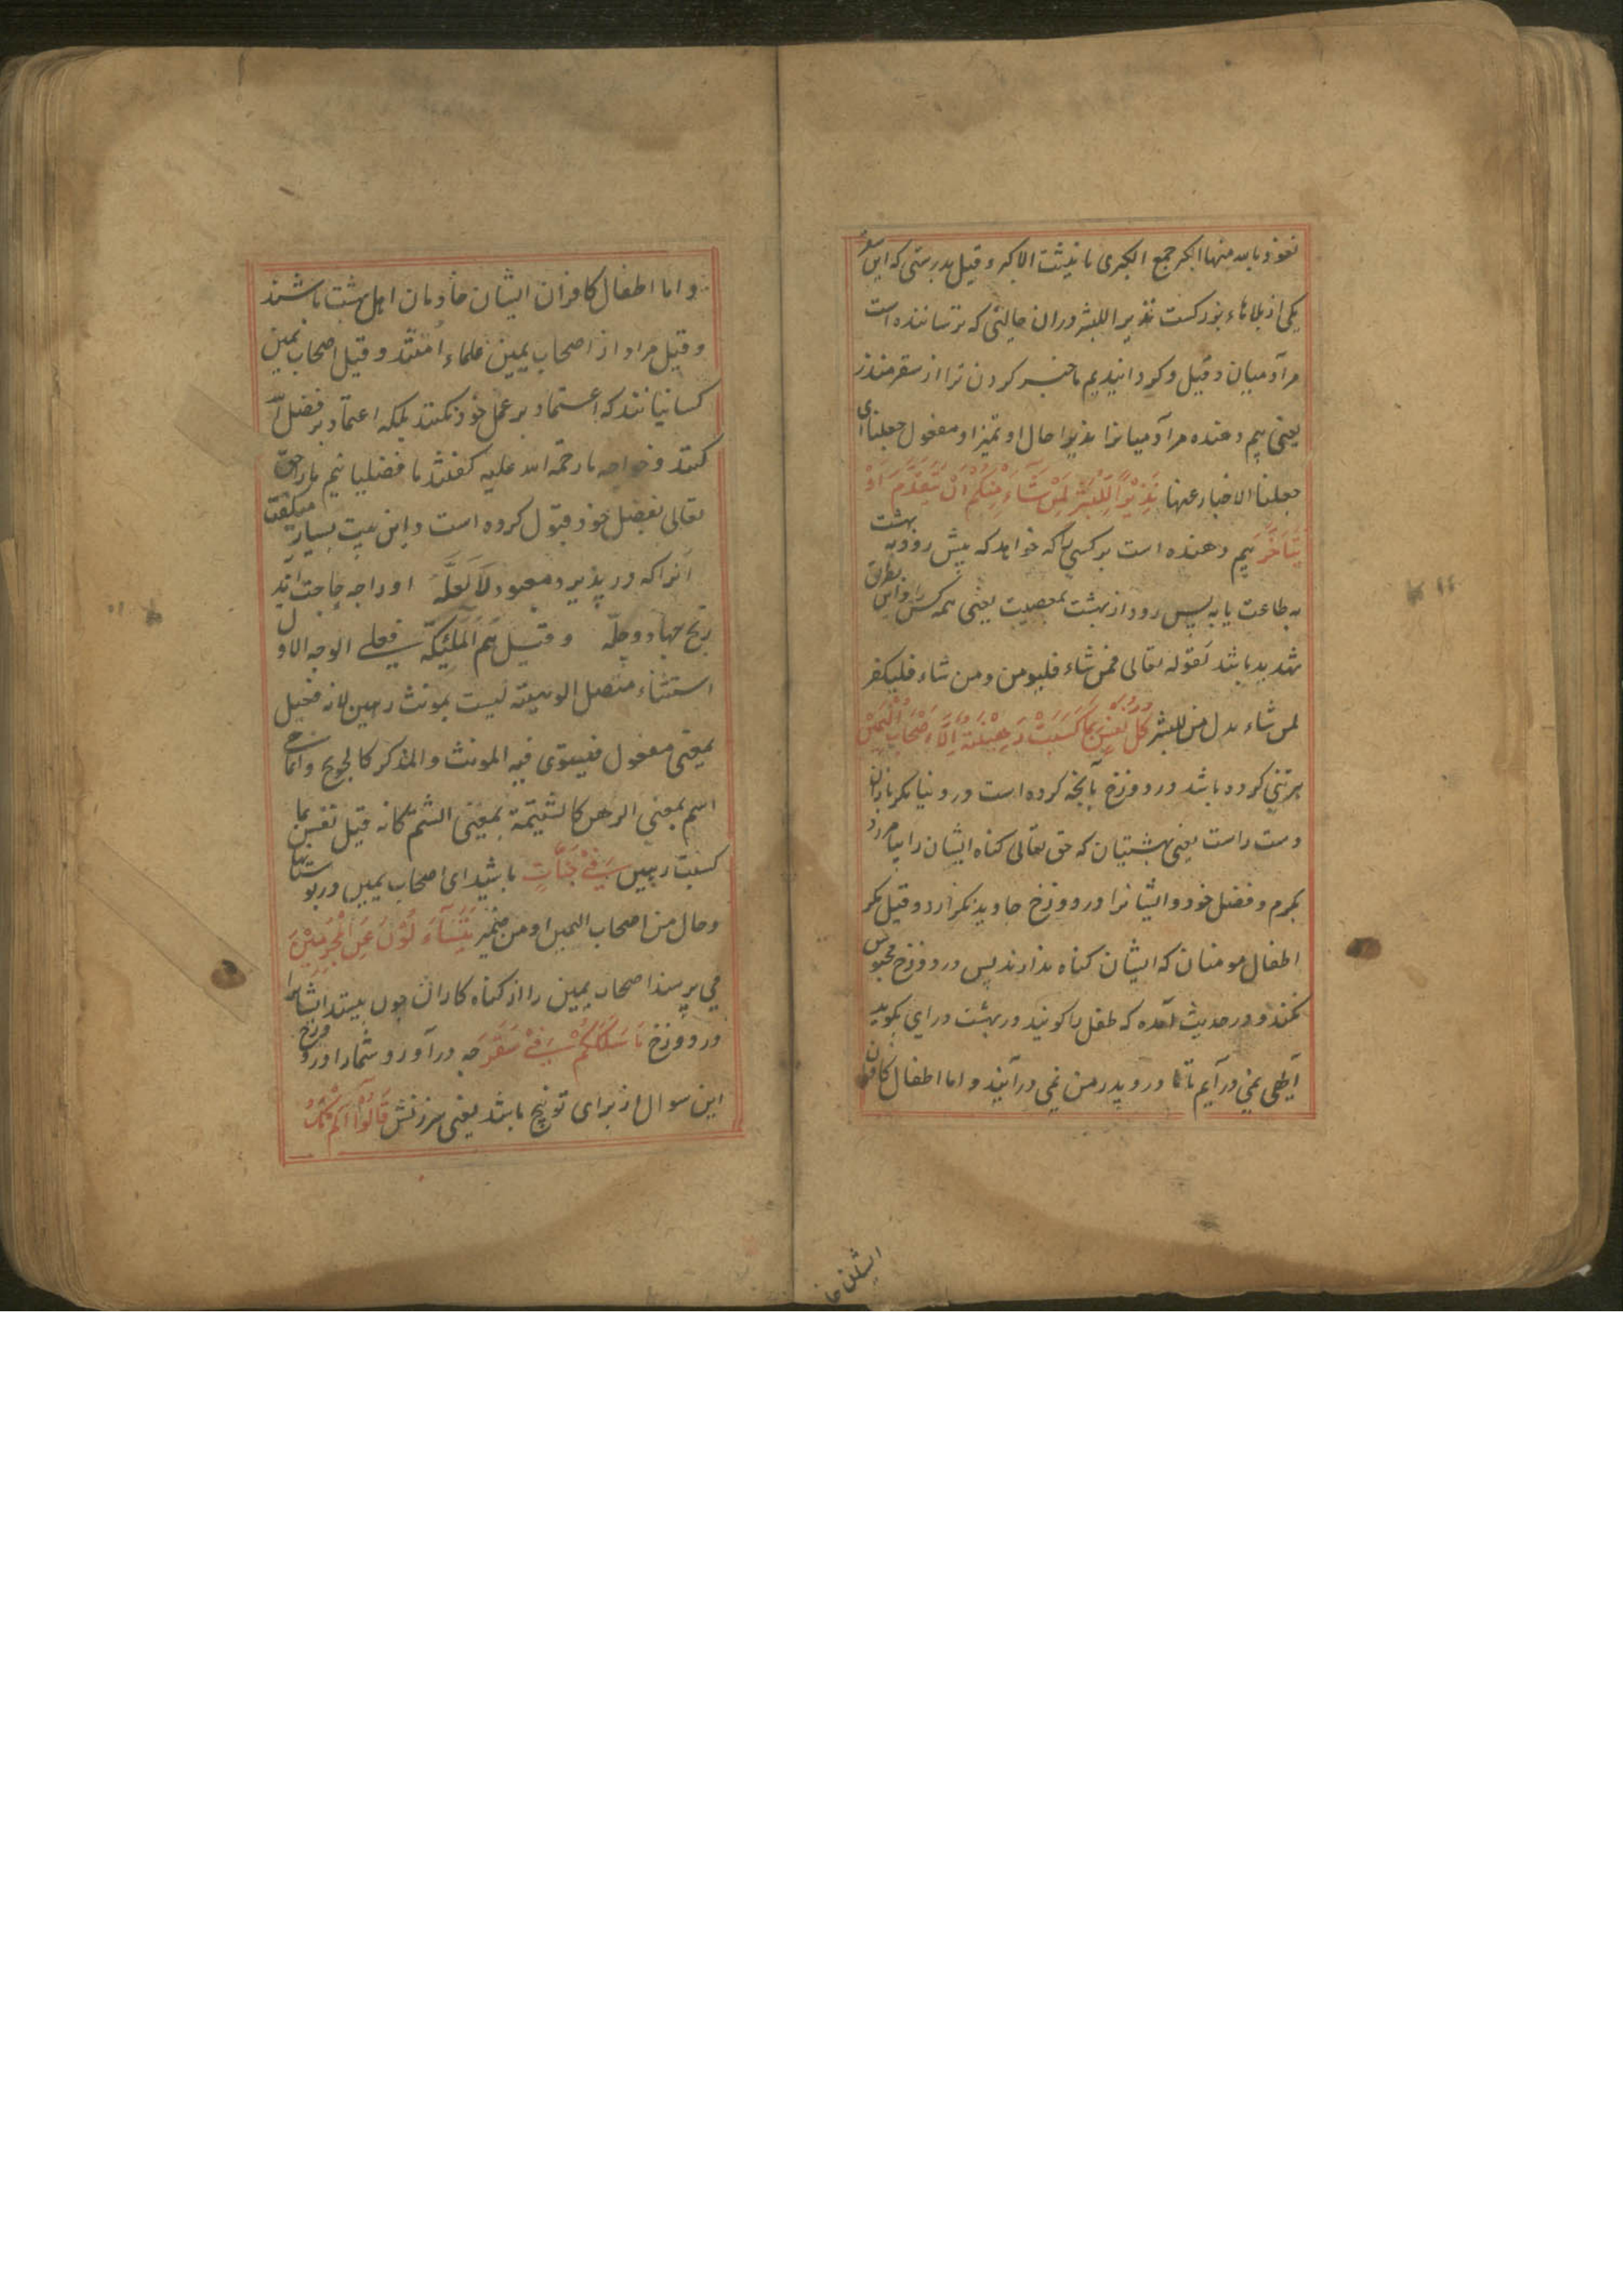 نعوذ بالله منها الکبر جمع الکبری تانیث الاکبر و قیل بدرستی که این سقر
یکی از بلاهاء بزرکست نذیرا للبشر دران حالتی که ترساننده است
مر آدمیان و قیل و کردانیدیم ما خبر کردن ترا از سقر منذر
یعنی بیم دهنده مر آدمیانرا نذیرا حال او تمیز او مفعول جعلنا ای
جعلنا الاخبار عنها نَذِیْراً لِّلْبَشَرِ لِمَنْ شَآءَ مِنْکُمْ اَنْ یَّتَقَدَّمَ اَوْ
یَتَاَخَّرَ بیم دهنده است بر کسی که خواهد که پیش رود به بهشت
به طاعت یا به پس رود از بهشت بمعصیت یعنی همه کس را و این بطریق
تهدید باشد لقوله تعالی فمن شاء فلیومن و من شاء فلیکفر
لمن شاء بدل من للبشر کُلُّ نَفْسٍ بِمَا کَسَبَتْ رَهِیْنَةٌ اِلَّا اَصْحَابَ الْیَمِیْنِ
هر تنی کرو باشد در دوزخ بآنچه کرده است در دنیا مکر یاران
دست راست یعنی بهشتیان که حق تعالی کناه ایشان را بیامرزد
بکرم و فضل خود و ایشانرا در دوزخ جاوید نکزارد و قیل مکر
اطفال مومنان که ایشان کناه ندارند پس در دوزخ محبوس
نکنند و در حدیث آمده که طفل را کویند در بهشت درای بکوید
الهی نمی درآیم تا مادر و پدر من نمی درآیند و اما اطفال کافران
ایشان خا
و اما اطفال کافران ایشان خادمان اهل بهشت باشند
و قیل مراد از اصحاب یمین علماء امتند و قیل اصحاب یمین
کسانیانند که اعتماد بر عمل خود نکنند بلکه اعتماد بر فضل الله
کنند و خواجه ما رحمة الله علیه کفتند ما فضلیانیم ما را حق
تعالی بفضل خود قبول کرده است و این بیت بسیار میکفتند
آنرا که در پذیرد معبود لا لعلّه او را چه حاجت آید
رنج چهاد و چلّه و قیل هم الملئکة فعلی الوجه الاول
استثناء متصل الرهینة لیست بمونث رهین لانه فعیل
بمعنی مفعول فیستوی فیه المونث والمذکر کالجریح وانما هی
اسم بمعنی الرهن کالشتیمة بمعنی الشتم کانه قیل نفس بما
کسبت رهین فِیْ جَنَّاتٍ باشید ای اصحاب یمین در بوستانها
و حال من اصحاب الیمین او من ضمیر یَتَسَآءَلُوْنَ عَنِ الْمُجْرِمِیْنَ
می پرسند اصحاب یمین را از کناه کاران چون بینند ایشانرا
در دوزخ مَا سَلَکَکُمْ فِیْ سَقَرَ چه درآورد شمارا در دوزخ
این سوال از برای توبیخ باشد یعنی سرزنش قَالُوْا لَمْ نَکُ